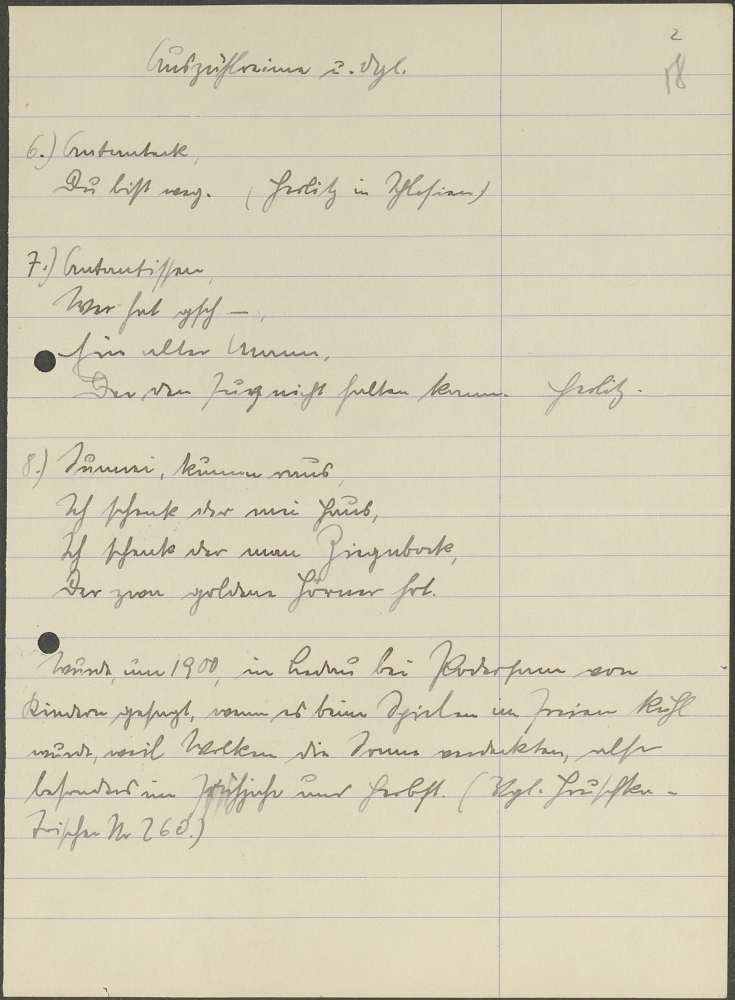 2
18
Auszählreime u. dgl.
6.) Antantack,
Du bist weg. (Herlitz in Schlesien)
7.) Antantissen,
Wer hat gsch –,
Ein alter Mann,
Der den Furz nicht halten kann. Herlitz.
8.) Sunnei, kumm raus,
Ich schenk der mei Haus,
Ich schenk der man Ziegnbock,
Der zwa goldene Hörner hot.
Wurde, um 1900, in bei Podersam von
Kindern gesagt, wenn es beim Spielen im Freien kühl
wurde, weil Wolken die Sonne verdeckten, also
besonders im Frühjahr und Herbst. (Vgl. Hruschka-
Toischer Nr 260.)